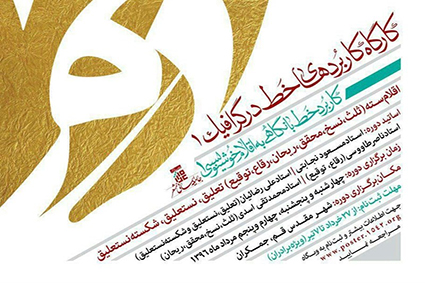 کارگاه کاربردهای خط در گرافیک ۱
کاربرد خط با نگاهی به اقلام خوشنویسی
اقلام سته (ثلث، نسخ، محقق، ریحان، رقاع، توقیع) تعلیق، نستعلیق، شکسته نستعلیق
اساتید دوره: استاد مسعود نجابتی / استاد علی رضائیان (تعلیق، نستعلیق و شکسته نستعلیق)
استاد ناصر طاووسی (رقاع، توقیع) / استاد محمدتقی اسدی (ثلث، نسخ، محقق، ریحان)
زمان برگزاری دوره: چهارشنبه و پنجشنبه، چهارم و پنجم مرداد ماه ۱۳۹۶
مکان برگزاری دوره: شهر مقدس قم، جمکران
مهلت ثبت نام: از ۲۷ خرداد تا ۲۷ تیر (ویژه برادران)
جهت اطلاعات بیشتر و ثبت نام به وبگاه
www.poster1ser.org
مراجعه نمایید